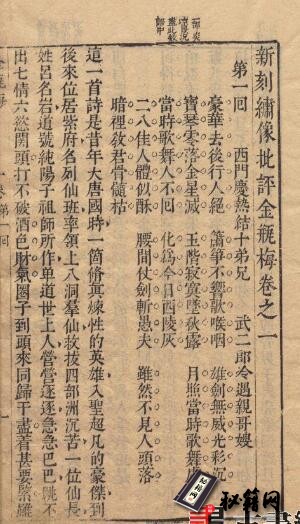 一部炎
涼景况
盡此數
語中
新刻繡像批評金瓶梅卷之一
第一回 西門慶熱結十弟兄 武二郎冷遇親哥嫂
豪華去後行人絕 簫箏不響歌喉咽 雄劍無威光彩沉
寶琴零落金星滅 玉階寂寞墜秋露 月照當時歌舞處
當時歌舞人不回 化為今日西陵灰
二八佳人體似酥 腰間仗劍斬愚夫 雖然不見人頭落
暗裡教君骨髓枯
這一首詩是昔年大唐國時一箇修真煉性的英雄入聖超凡的豪傑到
後來位居紫府名列仙班率領上八洞羣仙救拔四部洲沉苦一位仙長
姓呂名岩道號純陽子祖師所作單道世上人營營逐逐急急巴巴跳不
出七情六慾關頭打不破酒色財氣圈子到頭來同歸于盡着甚要緊雖
第一回
秘籍网